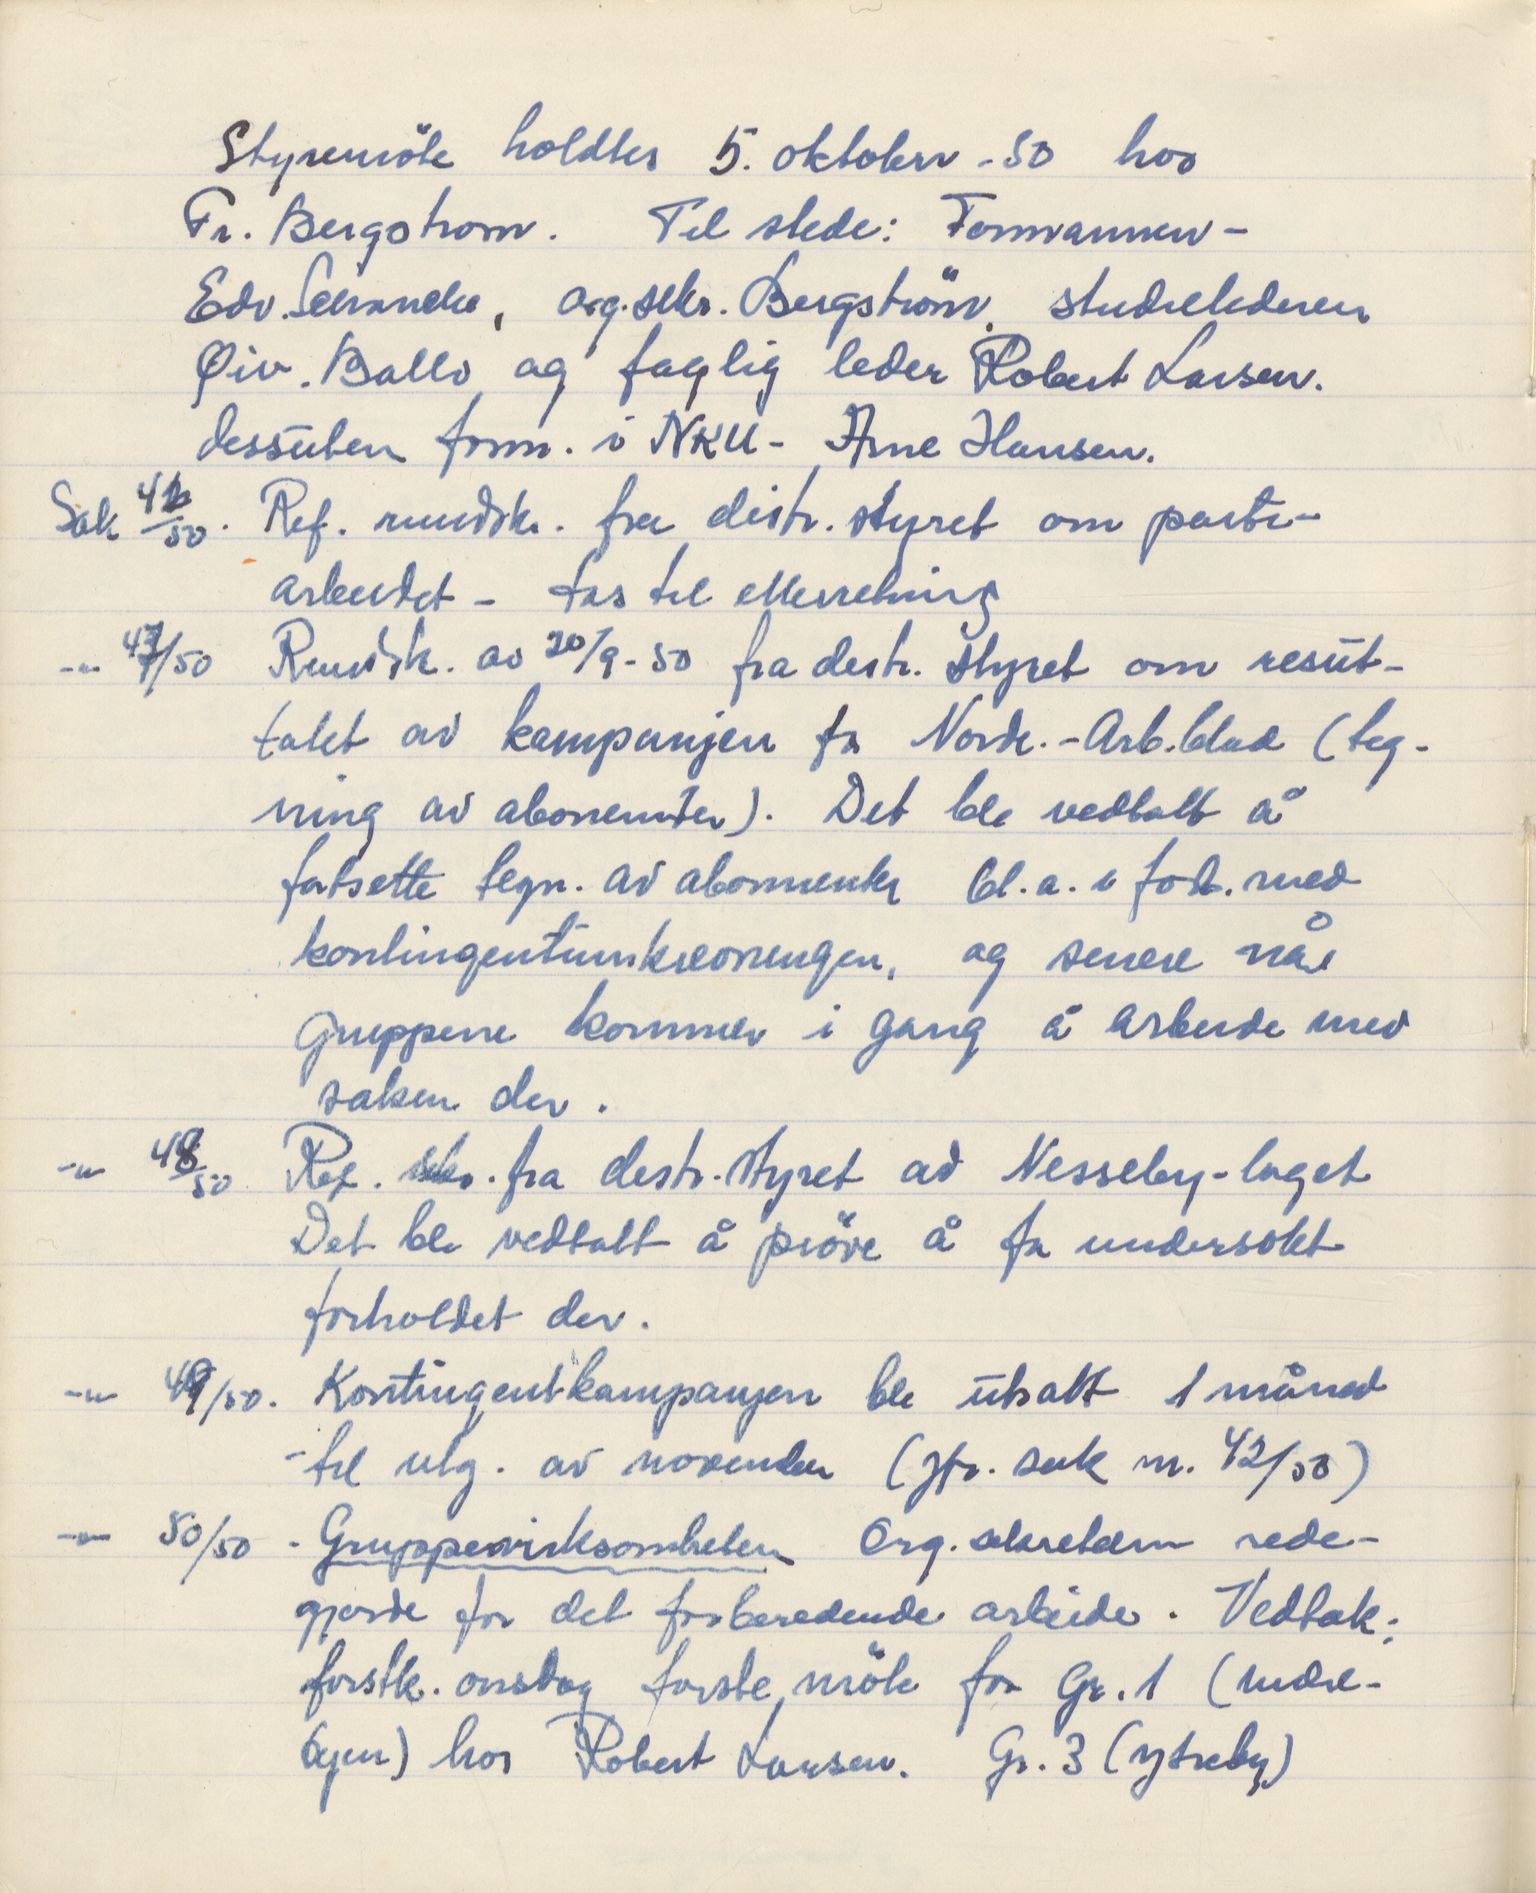 Styremöte holdtes 5. oktober -50 hos
Fr. Bergstrøm. Til stede: Formannen -
Edv. Schancke, org.sekr. Bergström, studielederen
Øiv. Ballo og faglig leder Robert Larsen.
dessuten form. i NKU - Arne Hansen.
Sak 46/50. Ref. rundskr. fra distr. styret om parti-
arbeidet - tas til etterretning
-"- 47/50 Rundsk. av 20/9-50 fra distr. styret om resul-
tatet av kampanjen for Nordn.-Arb.blad (teg-
ning av abonementer). Det ble vedtatt å
fortsette tegn. av abonnenter bl.a. i forb. med
kontingentinnkrevningen, og senere når
gruppene kommer i gang å arbeide med
saken der.
-"- 48/50 Ref. skr. fra distr. styret ad Nesseby-laget
Det ble vedtatt å pröve å få undersokt
forholdet der.
-"- 49/50. Kontingentkampanjen ble utsatt 1 måned
- til utg. av november (jfr. sak nr. 42/50)
-"- 50/50 - Gruppevirksomheten Org. sekretæren rede-
gjorde for det forberedende arbeide. Vedtak:
forstk. onsdag forste möte for Gr. 1 (Indre-
byen) hos Robert Larsen. Gr. 3 (ytreby)